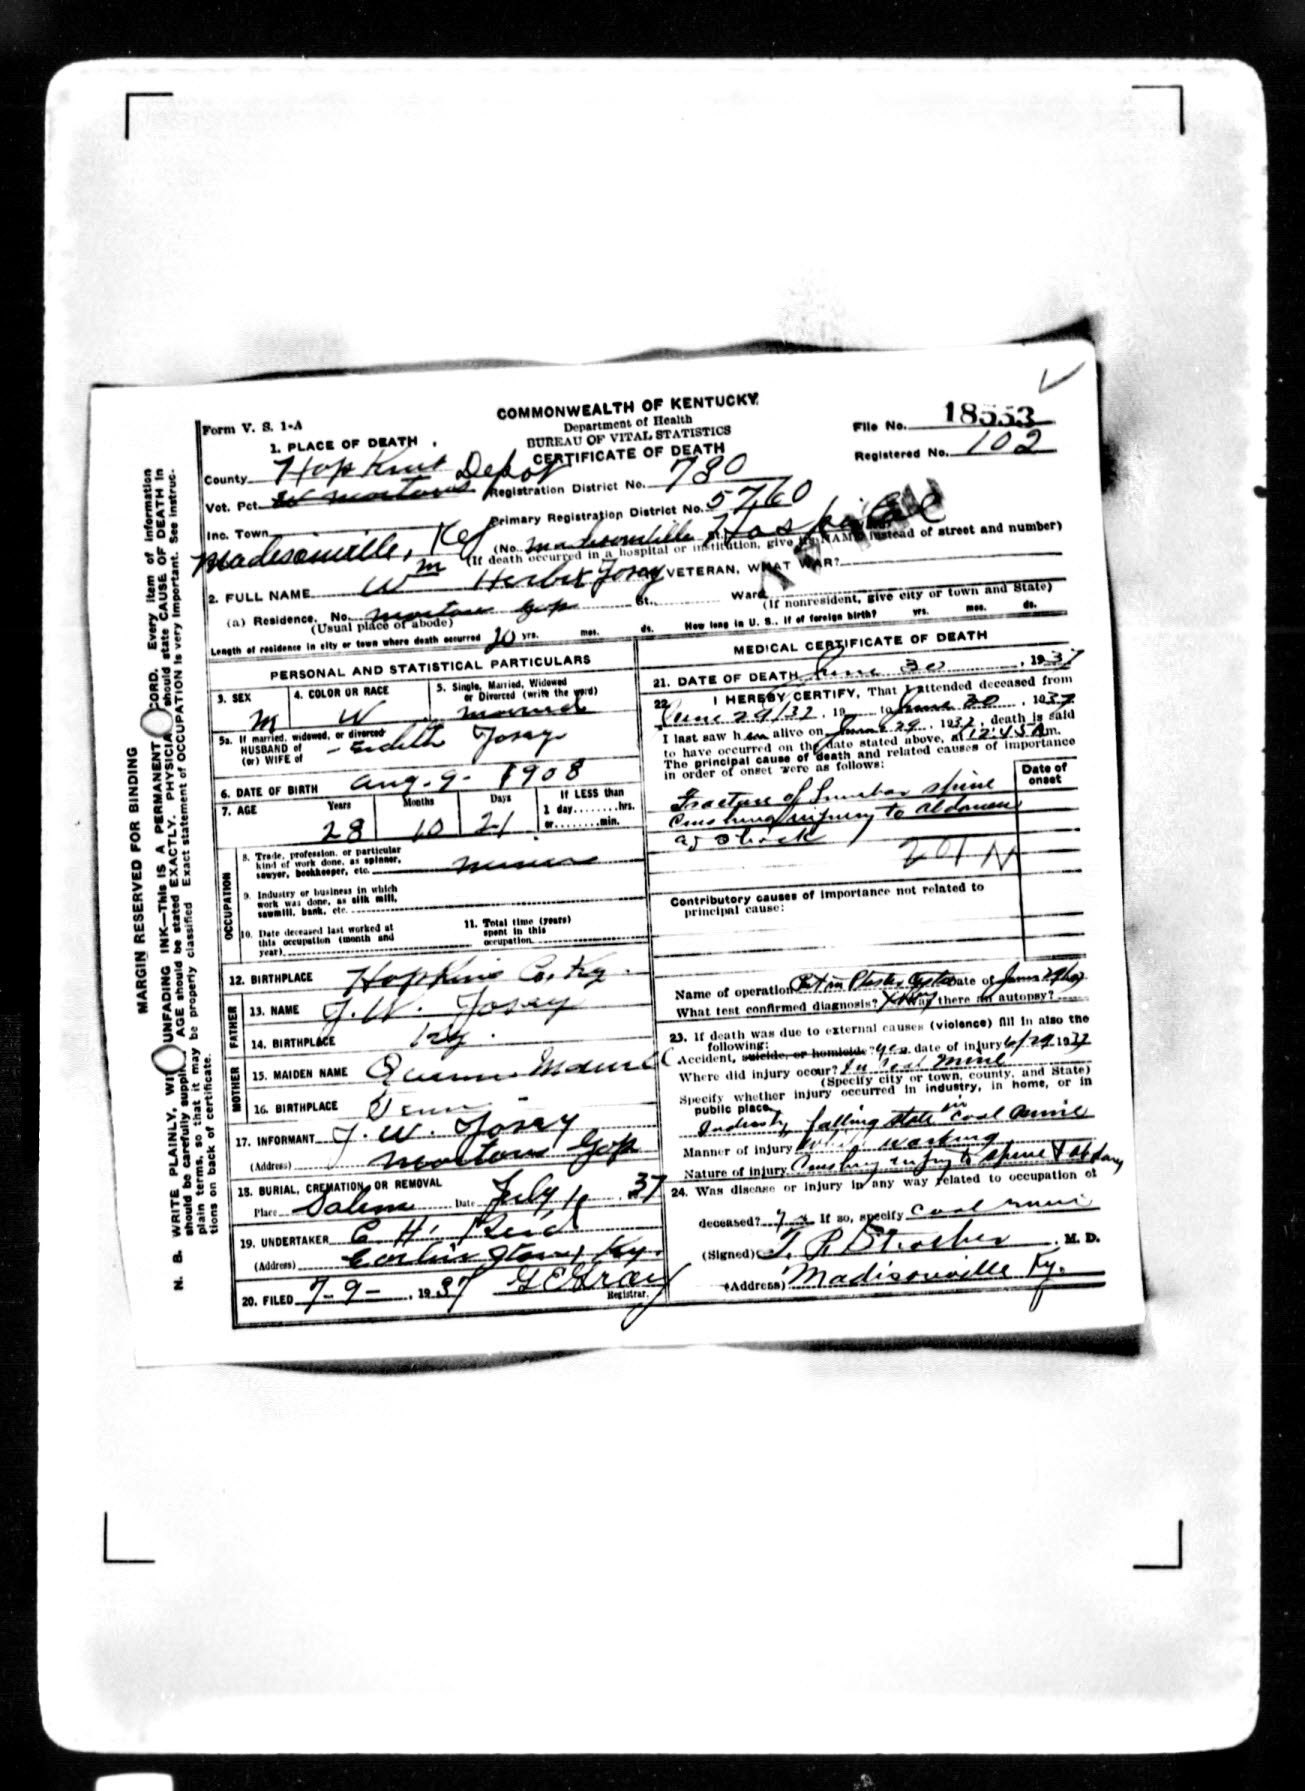 Form V. S. 1-A
COMMONWEALTH OF KENTUCKY
Department of Health
BUREAU OF VITAL STATISTICS
CERTIFICATE OF DEATH
File No. 18553
Registered No. 102
1. PLACE OF DEATH
County Hopkins
Vot. Pct. W Mortons Depot
Registration District No. 780
Inc. Town
Primary Registration District No. 5760
Madisonville, Ky (No. Madisonville Hospital
(If death occurred in a hospital or institution, give its NAME instead of street and number)
2. FULL NAME Wm Herbert Josey VETERAN, WHAT WAR?
(a) Residence. No. Mortons Gap St., Ward
(Usual place of abode) (If nonresident, give city or town and State)
Length of residence in city or town where death occurred 20 yrs. mos. ds. How long in U. S., if of foreign birth? yrs. mos. ds.
PERSONAL AND STATISTICAL PARTICULARS
3. SEX M
4. COLOR OR RACE W
5. Single, Married, Widowed or Divorced (write the word) married
5a. If married, widowed, or divorced
HUSBAND of
(or) WIFE of Josey
6. DATE OF BIRTH Aug. 9 - 1908
7. AGE Years 28 Months 10 Days 21 If LESS than 1 day......hrs. or......min.
OCCUPATION
8. Trade, profession, or particular
kind of work done, as spinner,
sawyer, bookkeeper, etc. miner
9. Industry or business in which
work was done, as silk mill,
sawmill, bank, etc.
10. Date deceased last worked at
this occupation (month and
year)
11. Total time (years)
spent in this
occupation
12. BIRTHPLACE Hopkins Co. Ky.
FATHER
13. NAME J. W. Josey
14. BIRTHPLACE Ky.
MOTHER
15. MAIDEN NAME
16. BIRTHPLACE Tenn
17. INFORMANT J. W. Josey
(Address) Mortons Gap
18. BURIAL, CREMATION, OR REMOVAL
Place Salem Date July 1 1937
19. UNDERTAKER C. H. Reid
(Address) Ky.
20. FILED 7-9-, 1937 G E Gray
Registrar.
MEDICAL CERTIFICATE OF DEATH
21. DATE OF DEATH June 30, 1937
22. I HEREBY CERTIFY, That I attended deceased from
June 29/37, 19 to June 30, 1937
I last saw him alive on June 29, 1937, death is said
to have occurred on the date stated above, at 12:45 Am.
The principal cause of death and related causes of importance
in order of onset were as follows:
Date of onset
Fracture of Lumbar spine
Crushing injury to abdomen
Contributory causes of importance not related to
principal cause:
Name of operation Put in Plaster Date of June 29
What test confirmed diagnosis? XRay Was there an autopsy?
23. If death was due to external causes (violence) fill in also the
following:
Accident, suicide, or homicide? yes date of injury 6/29 1937
Where did injury occur? In Coal Mine
(Specify city or town, county, and State)
Specify whether injury occurred in industry, in home, or in
public place.
Industry falling slate in coal mine
Manner of injury while working
Nature of injury Crushing injury to spine & abdomen
24. Was disease or injury in any way related to occupation of
deceased? yes If so, specify Coal mine
(Signed) T. R. Strother, M. D.
(Address) Madisonville Ky.
MARGIN RESERVED FOR BINDING
N. B. WRITE PLAINLY, WITH UNFADING INK—THIS IS A PERMANENT RECORD. Every item of information
should be carefully supplied. AGE should be stated EXACTLY. PHYSICIANS should state CAUSE OF DEATH in
plain terms, so that it may be properly classified. Exact statement of OCCUPATION is very important. See instruc-
tions on back of certificate.